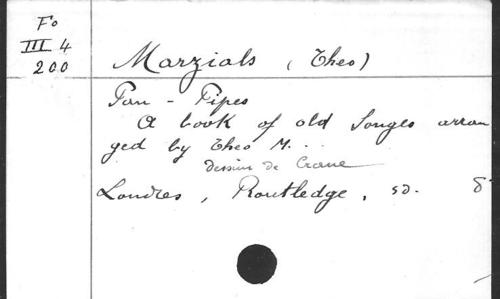 Fo
III 4
200
Marzials (Theo)
Pan-Pipes
A book of old Songes arran
ged by Theo M...
dessins de Crane
Londres, Routledge, sd. 8°